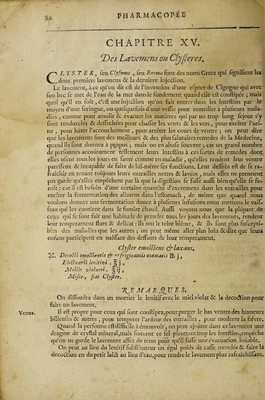 82 PHARMACOPÉE
CHAPITRE XV.
Des Lavemens ou Clysteres.
CLYSTER, seu Clysma, seu Enema sont des noms Grecs qui signifient les
deux premiers lavemens & la derniere injection.
Le lavement, à ce qu'on dit est de l'invention d'une espece de Cigogne qui avec
son bec se met de l'eau de la mer dans le fondement quand elle est constipée; mais
quoi qu'il en soit, c'est une injection qu'on fait entrer dans les intestins par le
moyen d'une seringue, ou quelquefois d'une vessie pour remedier à plusieurs mala-
dies, comme pour amolir & évacuer les matieres qui par un trop long sejour s'y
sont endurcies & dessechées pour chasser les vents & les vers, pour exciter l'uri-
ne, pour hâter l'accouchement, pour arrêter les cours de ventre; on peut dire
que les lavemens sont des meilleurs & des plus salutaires remedes de la Medecine,
quand ils sont donnez à propos; mais on en abuse souvent; car un grand nombre
de personnes accoûtument tellement leurs intestins à ces sortes de remedes dont
elles usent tous les jours en santé comme en maladie, qu'elles rendent leur ventre
paresseux & incapable de faire de lui-même ses fonctions. Leur dessein est de se ra-
fraîchir en tenant toûjours leurs entrailles nettes & lavées, mais elles ne prennent
pas garde qu'elles empêchent par là que la digestion se fasse aussi bien qu'elle se fe-
roit: car il est besoin d'une certaine quantité d'excremens dans les entrailles pour
exciter la fermentation des alimens dans l'estomach, de même que quand nous
voulons donner une fermentation douce à plusieurs infusions nous mettons le vais-
seau qui les contient dans le fumier chaud. Aussi voyons nous que la plûpart de
ceux qui se font une habitude de prendre tous les jours des lavemens, rendent
leur temperament si délicat & si foible, qu'ils sont plus suscepti-
bles des maladies que les autres; on peut même aller plus loin & dire que leurs
enfans participent en naissant des défauts de leur temperament.
Clyster emolliens & laxans.
℞. Decocti emollientis & refrigerantis communis ℔j,
Electuarii lenitivi, ℥j,
Mellis violacei, ℥ij,
Misce, fiat Clyster.
REMARQUES.
On dissoudra dans un mortier le lenitif avec le miel violat & la decoction pour
faire un lavement.
Vertus. Il est propre pour ceux qui sont constipez, pour purger le bas ventre des humeurs
bilieuses & autres, pour temperer l'ardeur des entrailles, pour moderer la fiévre.
Quand la personne est difficile à émouvoir, on peut ajoûter dans ce lavement une
dragme de crystal mineral, mais souvent ce sel picotant trop les intestins, empêche
qu'on ne garde le lavement assez de tems pour qu'il fasse une évacuation louable.
On peut au lieu du lenitif substituer un égal poids de casse mondée & faire la
decoction en du petit laict au lieu d'eau, pour rendre le lavement plus rafraîchissant.